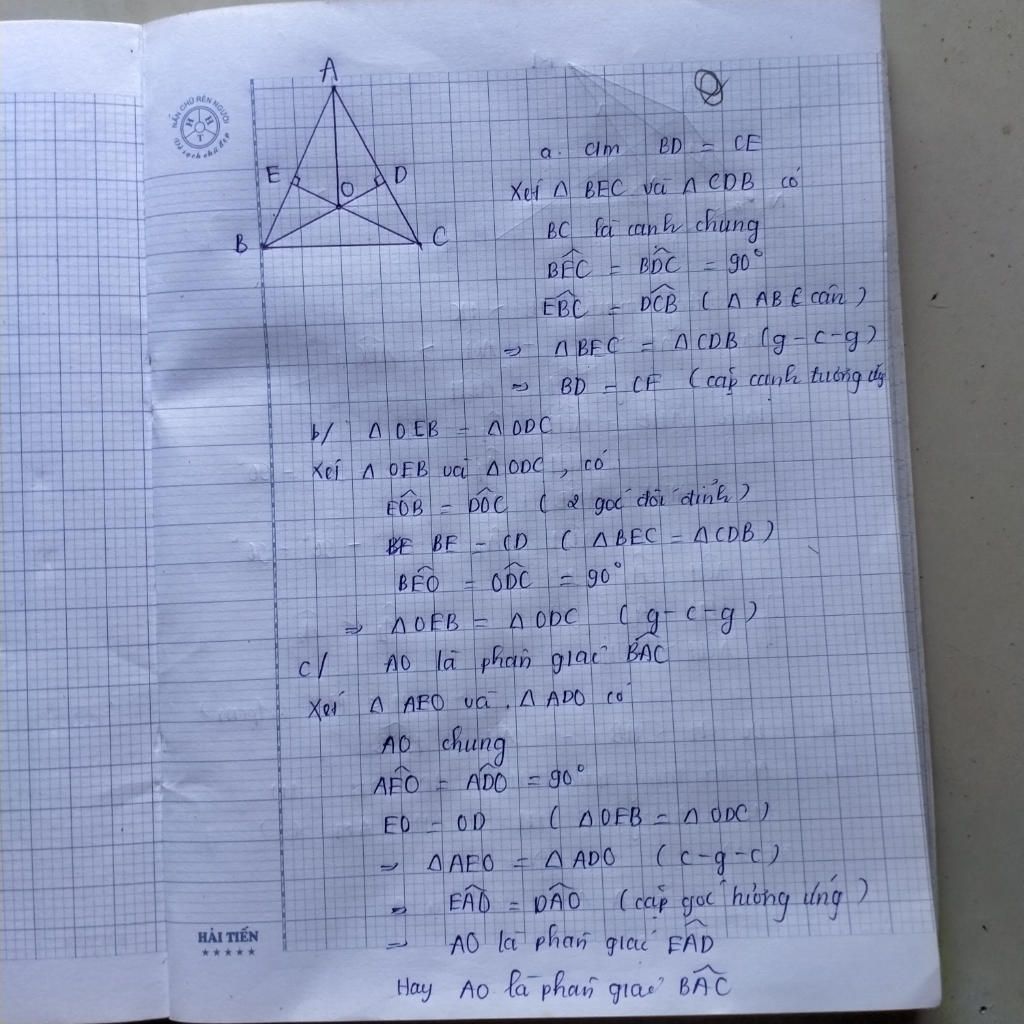 NẮN CHỮ RÈN NGƯỜI
H H T
Vở sạch chữ đẹp
A
E
D
O
B
C
a. Cm BD = CE
Xét Δ BEC và Δ CDB có
BC là cạnh chung
BÊC = BD̂C = 90°
EB̂C = DĈB ( Δ ABC cân )
=> Δ BEC = Δ CDB (g-c-g)
=> BD = CE ( cặp cạnh tương ứng
b/ Δ OEB = Δ ODC
Xét Δ OEB và Δ ODC , có
EÔB = DÔC ( 2 góc đối đỉnh )
BE BE = CD ( Δ BEC = Δ CDB )
BÊO = OD̂C = 90°
=> Δ OEB = Δ ODC ( g-c-g )
c/ AO là phân giác BÂC
Xét Δ AEO và . Δ ADO có
AO chung
AÊO = AD̂O = 90°
EO = OD ( Δ OEB = Δ ODC )
=> Δ AEO = Δ ADO ( c-g-c )
=> EÂO = DÂO ( cặp góc tương ứng )
=> AO là phân giác EÂD
Hay AO là phân giác BÂC
HẢI TIẾN
★★★★★